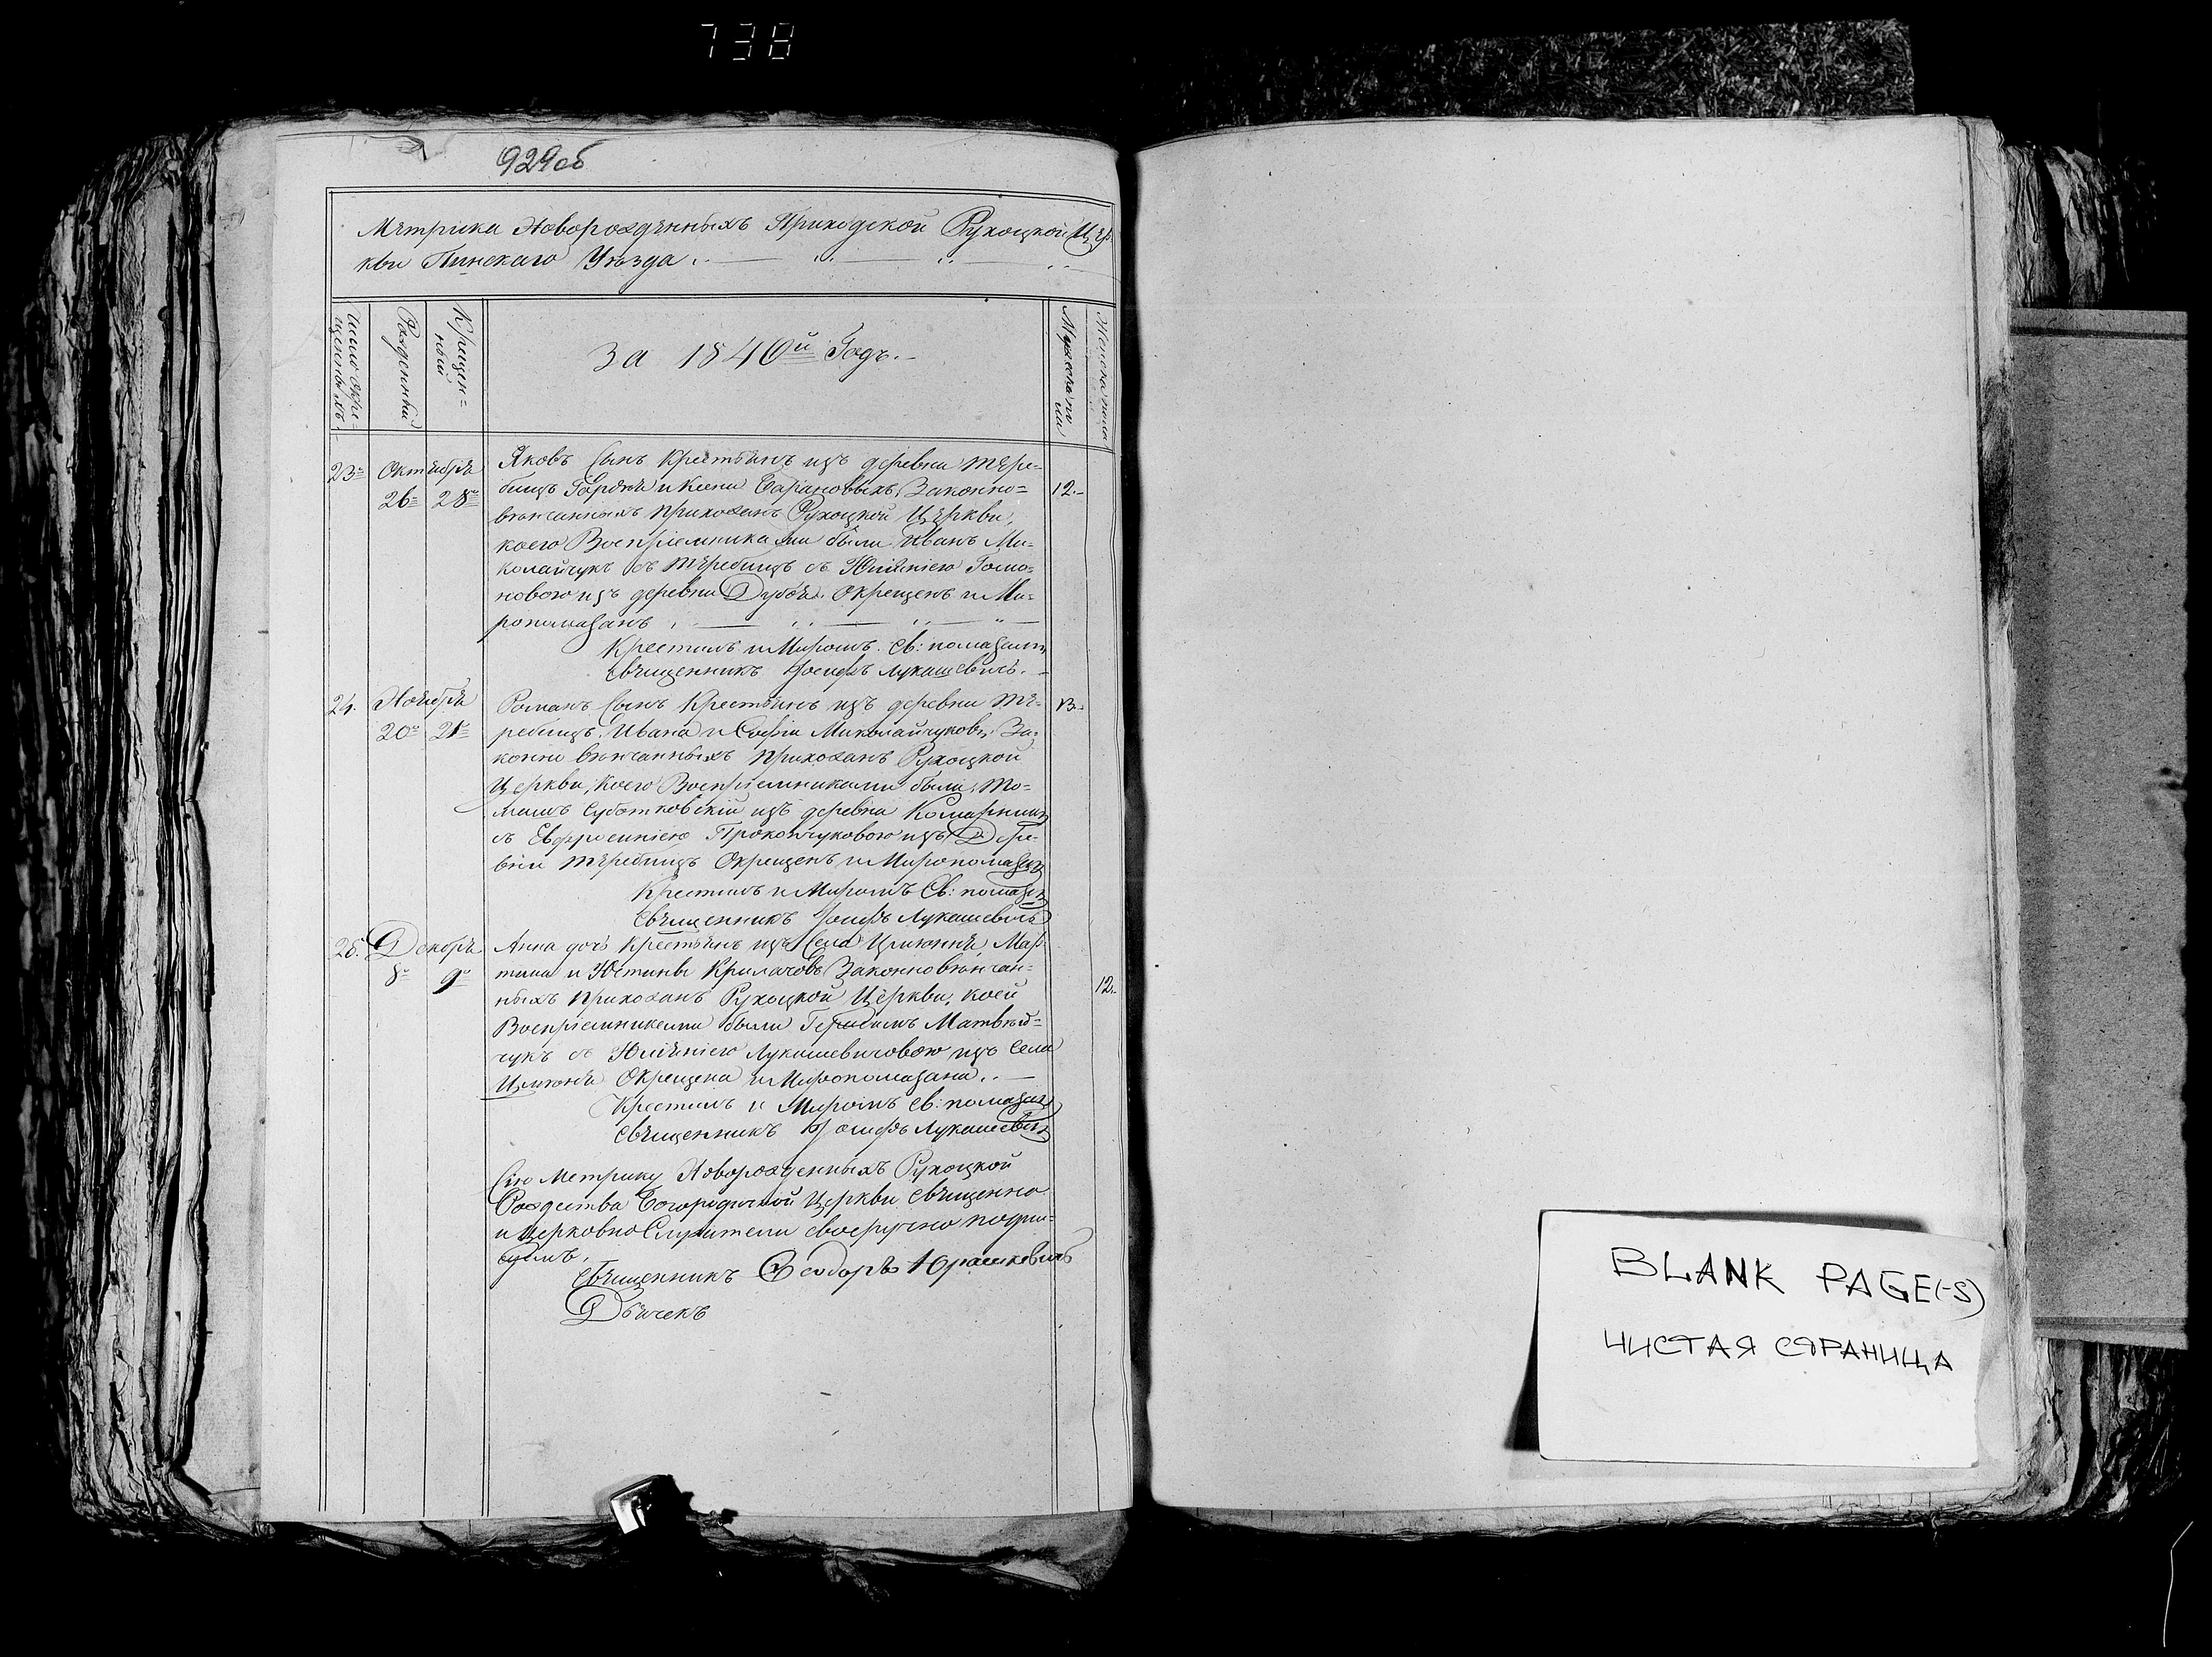 738
929об
Метрика Новорожденныхъ Приходской Рухоцкой Цер
кви Пинскаго Уѣзда
Число окре-
щенныхъ
Рожденный
Крещен=
ный
за 1840й Годъ.
Мужеска по
ла
Женска пола
23
Октября
26
28
Яковъ Сынъ Крестьянъ изъ деревни Тере=
бищъ Гордѣя и Ксени Барановыхъ Законно=
12.
вѣнчанныхъ прихожанъ Рухоцкой Церкви,
коего Воспріемниками были Иванъ Ми=
колайчукъ съ Теребищъ съ Юліяніею
новою изъ деревни Окрещенъ и Ми=
ропомазанъ
Крестилъ и Миромъ Св: помазалъ
Священникъ Іосифъ Лукашевичъ.
24.
Ноября
20
21
Романъ Сынъ Крестьянъ изъ деревни Те=
13.
ребищъ Ивана и Софіи Миколайчуковъ За=
конно вѣнчанныхъ прихожанъ Рухоцкой
Церкви, Коего Воспріемниками были То=
машъ изъ деревни
съ Евфросиніею Прокопчуковою изъ Дере=
вни Теребищъ Окрещенъ и Миропомазанъ
Крестилъ и Миромъ Св: помазалъ
Священникъ Іосифъ Лукашевичъ
25.
Декабря
8
9
Анна дочь Крестьянъ изъ Села Мар
тина и Юстины Законновѣнчан=
12.
ныхъ прихожанъ Рухоцкой Церкви, коей
Воспріемниками были Матвѣй=
чукъ съ Юліяніею Лукашевичовою изъ Села
Окрещена и Миропомазана.
Крестилъ и Миромъ св: помазалъ
Священникъ Іосифъ Лукашевичъ
Сію Метрику Новорожденныхъ Рухоцкой
Рождества Богородичной Церкви Священно
и Церковно Служители своеручно подпи=
суемъ,
Священникъ Ѳеодоръ Юрашкевичъ
Дьячекъ
BLANK PAGE(-S)
ЧИСТАЯ СТРАНИЦА